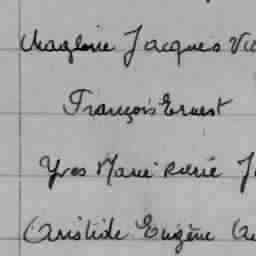 Magloire Jacques Vic
François Ernest
Yves Marie René J
Aristide Eugène